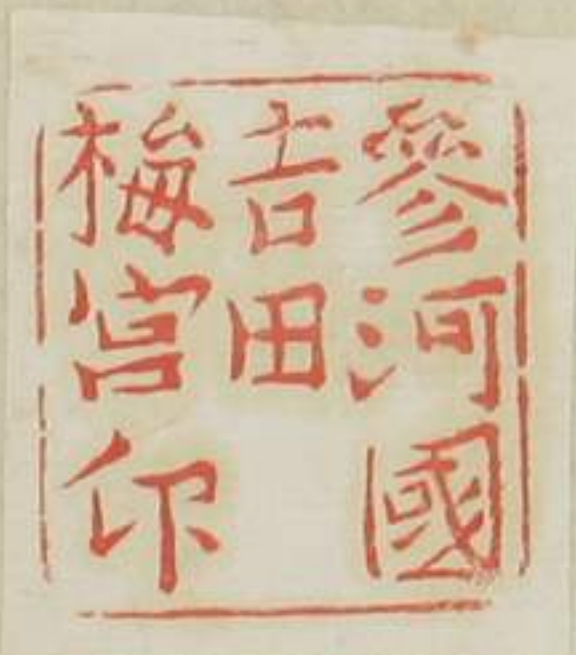 參河國
吉田
梅宮印